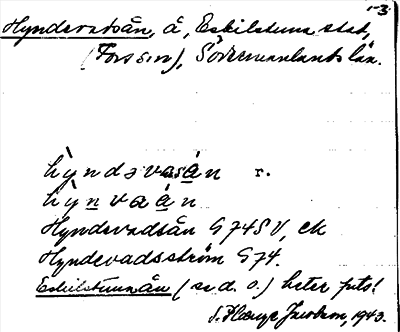 1-3
Hyndevadsån, å, Eskilstuna stad,
(Fors sn), Södermanlands län.
hỳndəvasán r.
hỳnvaán
Hyndevadsån G74SV, ek
Hyndevadsström G74.
Eskilstunaån (se d. o.) heter
S. Jacobson, 1943.